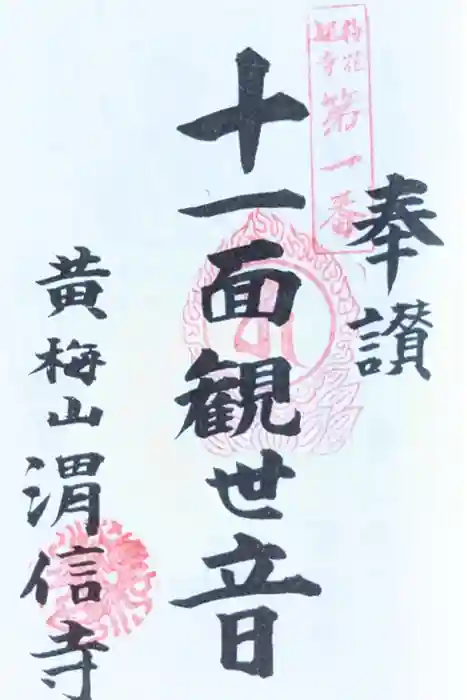 第一番
奉讃
十一面観世音
黄梅山渭信寺